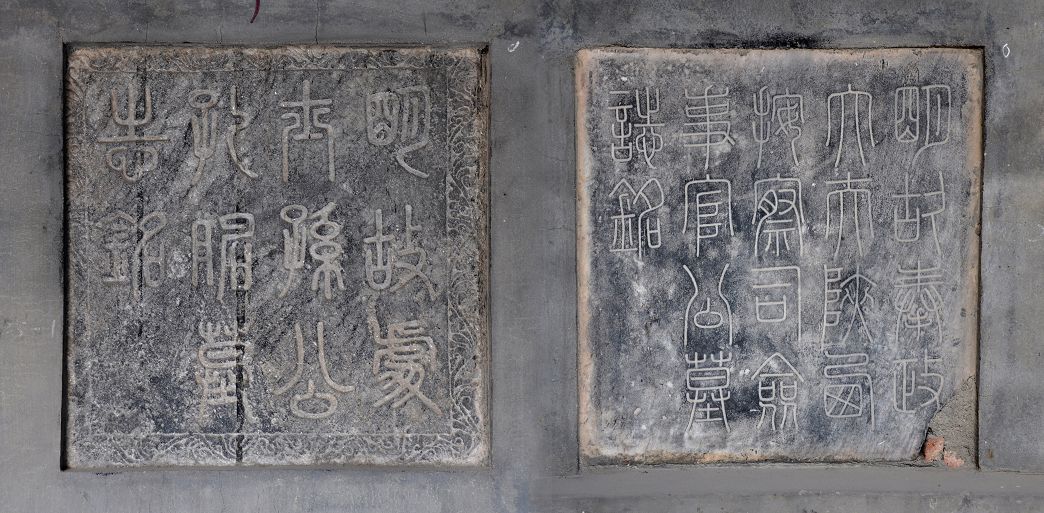 明故處
士孫公
孔墓
志銘
明故奉政
大夫陝西
按察司僉
事官公墓
誌銘